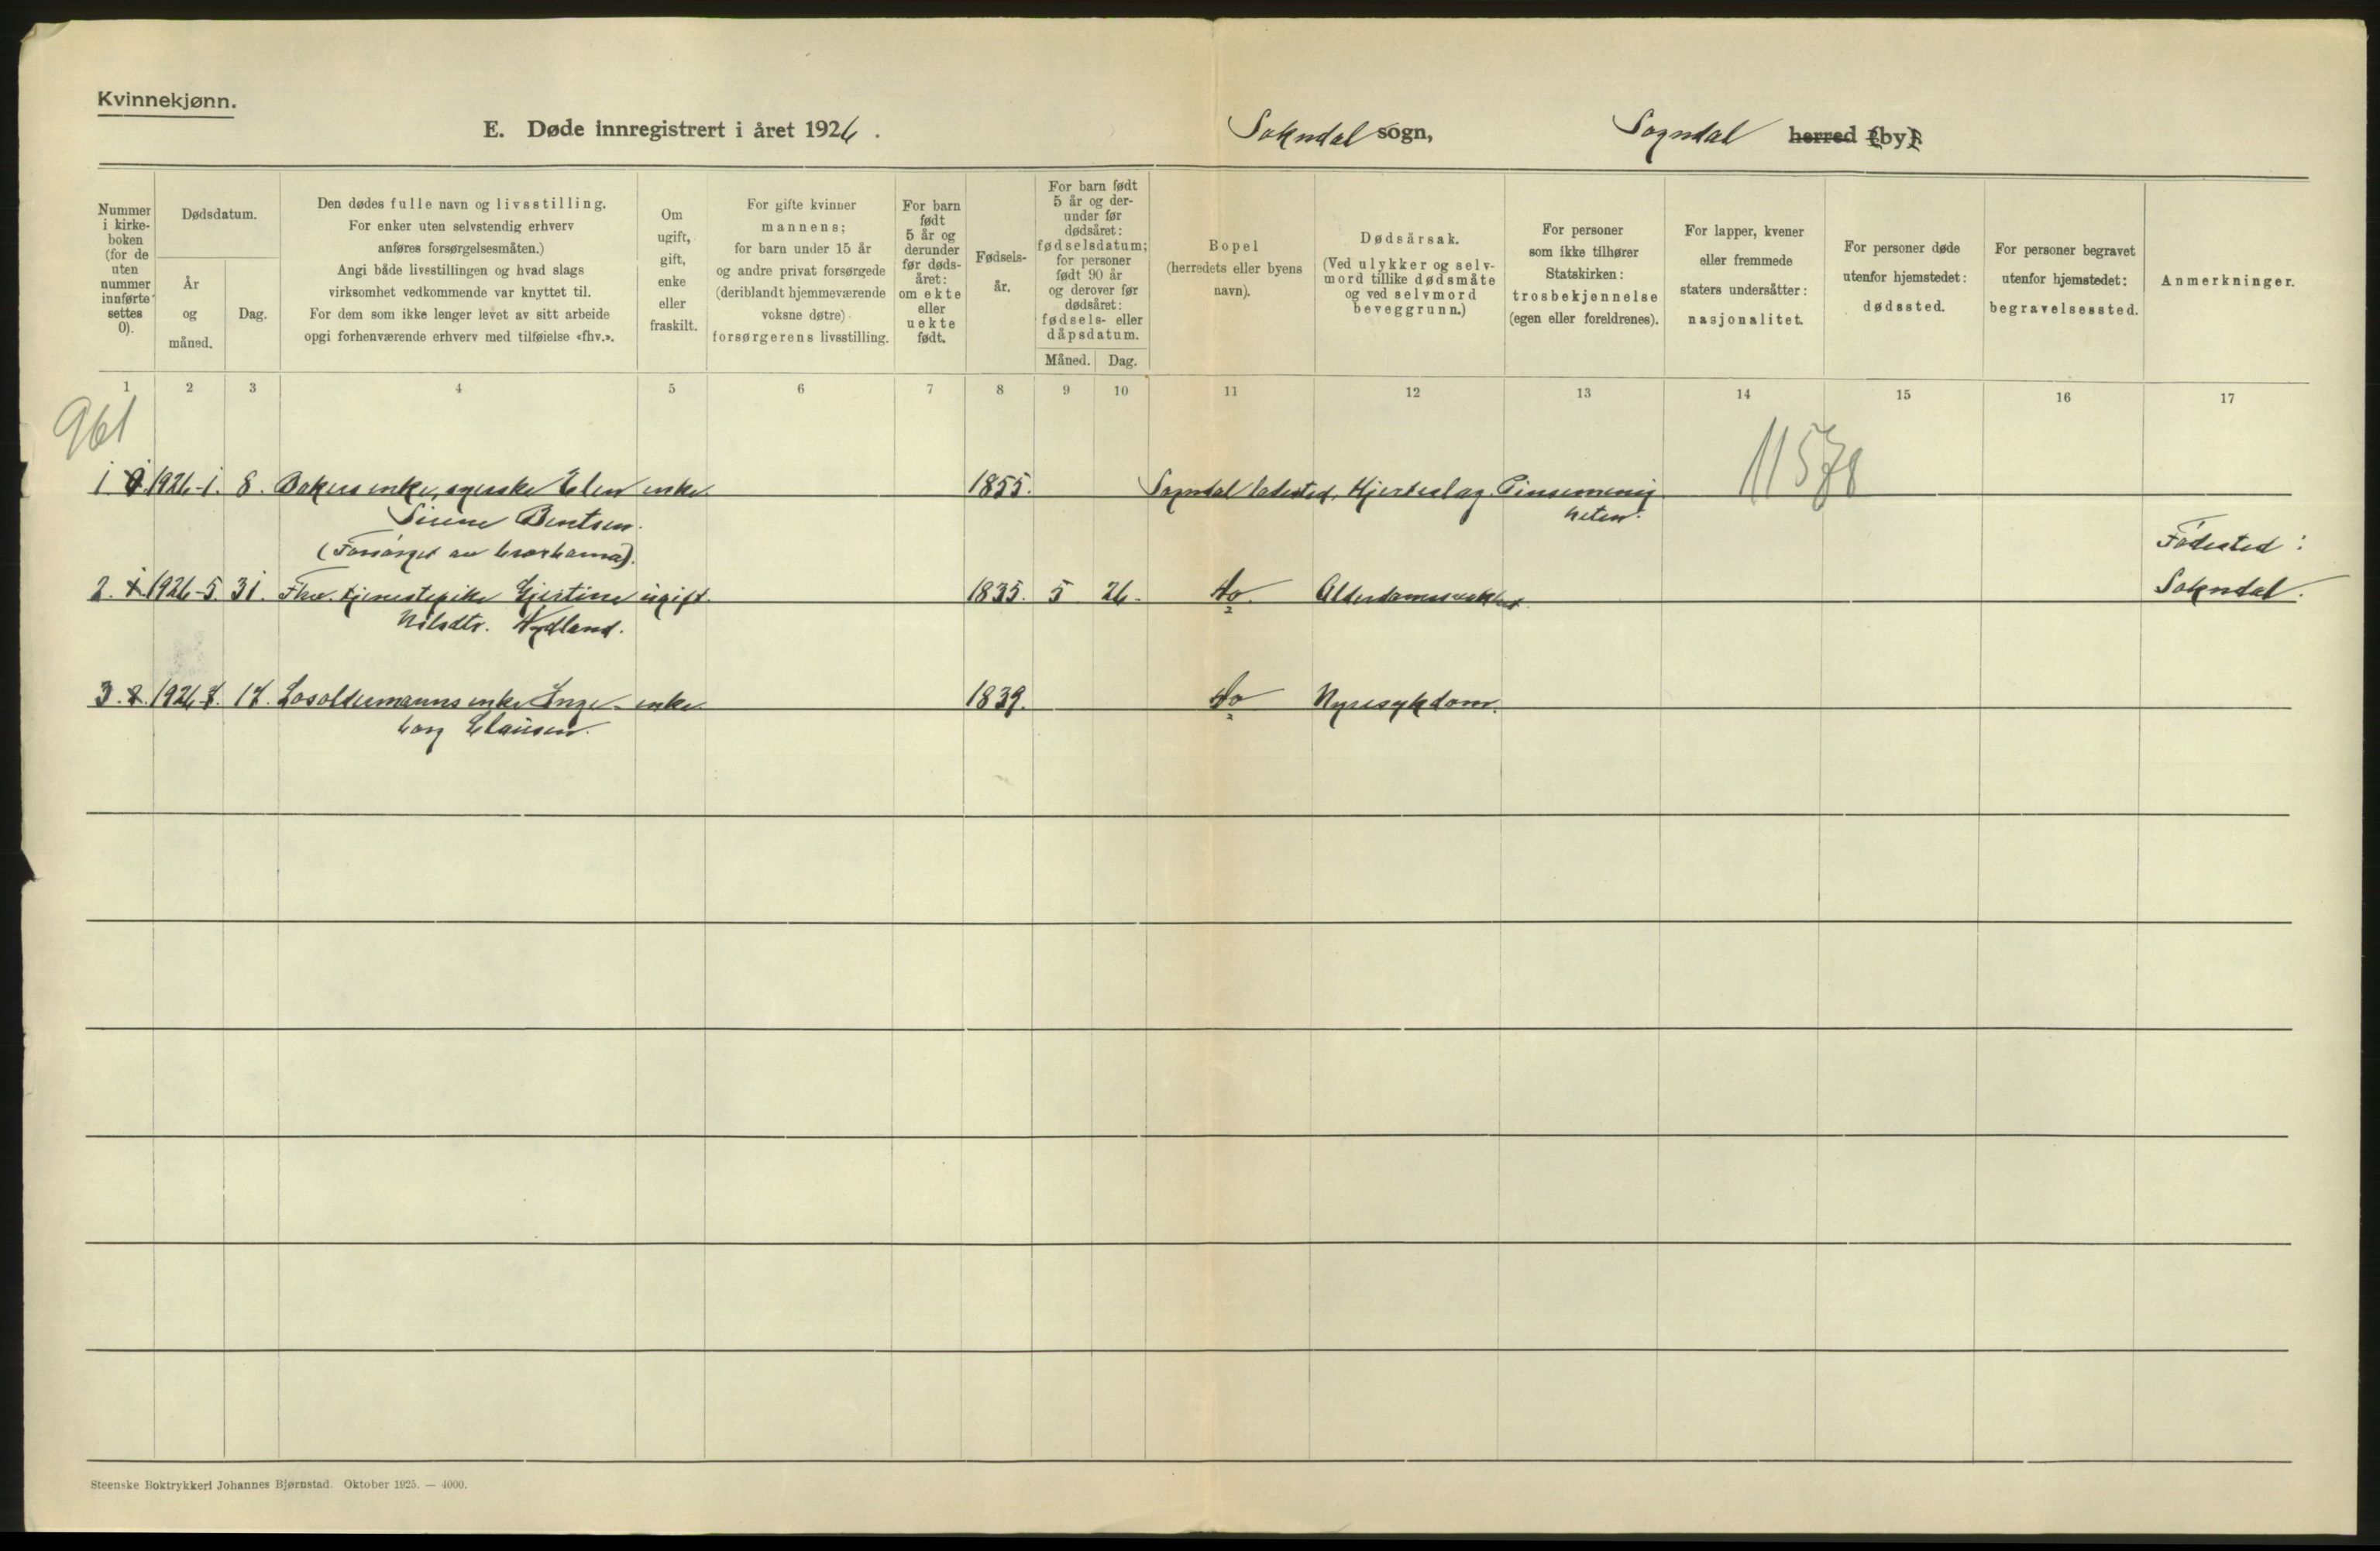 Kvinnekjønn.
E. Døde innregistrert i året 1926.
Sokndal sogn,
Sogndal herred (by).
Nummer
i kirke-
boken
(for de
uten
nummer
innførte
settes
0).
Dødsdatum.
År
og
måned.
Dag.
Den dødes fulle navn og livsstilling.
For enker uten selvstendig erhverv
anføres forsørgelsesmåten.)
Angi både livsstillingen og hvad slags
virksomhet vedkommende var knyttet til.
For dem som ikke lenger levet av sitt arbeide
opgi forhenværende erhverv med tilføielse «fhv.».
Om
ugift,
gift,
enke
eller
fraskilt.
For gifte kvinner
mannens;
for barn under 15 år
og andre privat forsørgede
(deriblandt hjemmeværende
voksne døtre)
forsørgerens livsstilling.
For barn
født
5 år og
derunder
før døds-
året:
om ekte
eller
uekte
født.
Fødsels-
år.
For barn født
5 år og der-
under før
dødsåret:
fødselsdatum;
for personer
født 90 år
og derover før
dødsåret:
fødsels- eller
dåpsdatum.
Måned. Dag.
Bopel
(herredets eller byens
navn).
Dødsårsak.
(Ved ulykker og selv-
mord tillike dødsmåte
og ved selvmord
beveggrunn.)
For personer
som ikke tilhører
Statskirken:
trosbekjennelse
(egen eller foreldrenes).
For lapper, kvener
eller fremmede
staters undersåtter:
nasjonalitet.
For personer døde
utenfor hjemstedet:
dødssted.
For personer begravet
utenfor hjemstedet:
begravelsessted.
Anmerkninger.
1 2 3 4 5 6 7 8 9 10 11 12 13 14 15 16 17
961
11578
1. 0. 1926-1. 8. Bakers enke, syerske Elen enke. 1855. Sogndal ladested. Hjerteslag. Pinsemenig
Sirene Bentsen. heten.
(Forsørget av brorbarna).
Fødested:
2. 1. 1926-5. 31. Fhv. tjenestepike Gjertine ugift. 1835. 5 26. do Alderdomssvakhet. Sokndal.
Nilsdtr. Hydland.
3. 2. 1926-7. 17. Losoldermanns enke Inge- enke 1839. do Nyresykdom.
borg Clausen.
Steenske Boktrykkeri Johannes Bjørnstad. Oktober 1925. — 4000.